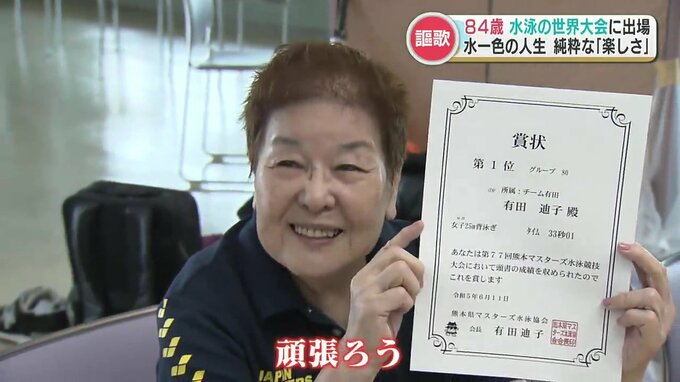 謳歌
84歳 水泳の世界大会に出場
水一色の人生 純粋な「楽しさ」
賞状
第1位 グループ 80
所属:チーム有田
有田 迪子 殿
女子25m背泳ぎ タイム 33秒01
あなたは第77回熊本マスターズ水泳競技
大会において頭書の成績を収められたので
これを賞します
令和5年6月11日
熊本県マスターズ水泳協会
会長 有田迪子
頑張ろう
JAPAN